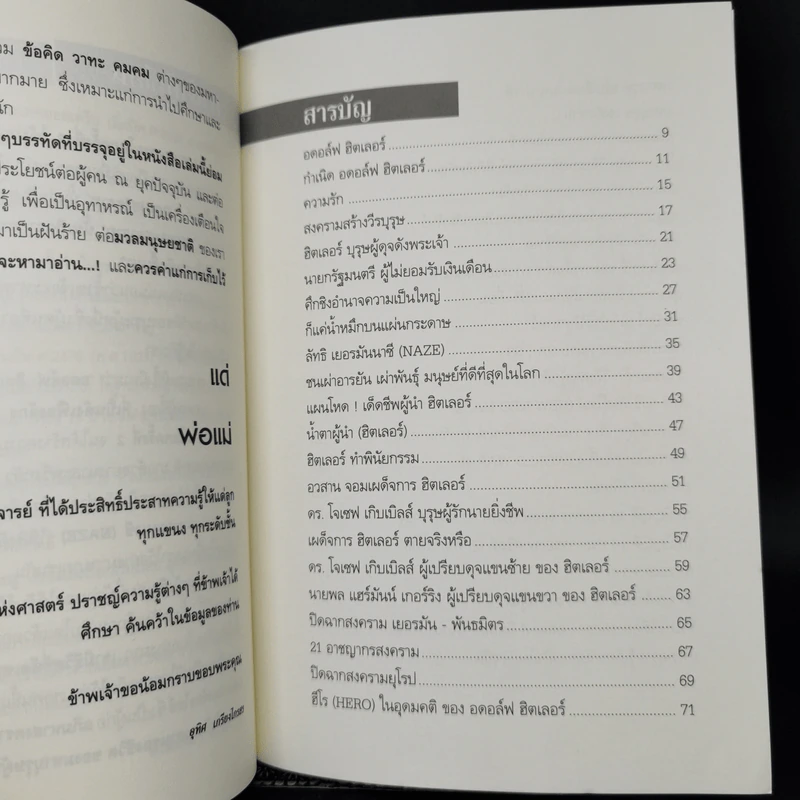 ข้อคิด วาทะ คมคม ต่างๆของมหา-
มากมาย ซึ่งเหมาะแก่การนำไปศึกษาและ
ๆบรรทัดที่บรรจุอยู่ในหนังสือเล่มนี้ย่อม
ประโยชน์ต่อผู้คน ณ ยุคปัจจุบัน และต่อ
รู้ เพื่อเป็นอุทาหรณ์ เป็นเครื่องเตือนใจ
มาเป็นฝันร้าย ต่อมวลมนุษยชาติ ของเรา
จะหามาอ่าน...! และควรค่าแก่การเก็บไว้
แด่
พ่อแม่
จารย์ ที่ได้ประสิทธิ์ประสาทความรู้ให้แด่ลูก
ทุกแขนง ทุกระดับชั้น
ห่งศาสตร์ ปราชญ์ความรู้ต่างๆ ที่ข้าพเจ้าได้
ศึกษา ค้นคว้าในข้อมูลของท่าน
ข้าพเจ้าขอน้อมกราบขอบพระคุณ
อุทิศ
สารบัญ
อดอล์ฟ ฮิตเลอร์ 9
กำเนิด อดอล์ฟ ฮิตเลอร์ 11
ความรัก 15
สงครามสร้างวีรบุรุษ 17
ฮิตเลอร์ บุรุษผู้ดุจดังพระเจ้า 21
นายกรัฐมนตรี ผู้ไม่ยอมรับเงินเดือน 23
ศึกชิงอำนาจความเป็นใหญ่ 27
ก็แค่น้ำหมึกบนแผ่นกระดาษ 31
ลัทธิ เยอรมันนาซี (NAZE) 35
ชนเผ่าอารยัน เผ่าพันธุ์ มนุษย์ที่ดีที่สุดในโลก 39
แผนโหด ! เด็ดชีพผู้นำ ฮิตเลอร์ 43
น้ำตาผู้นำ (ฮิตเลอร์) 47
ฮิตเลอร์ ทำพินัยกรรม 49
อวสาน จอมเผด็จการ ฮิตเลอร์ 51
ดร. โจเซฟ เกิบเบิลส์ บุรุษผู้รักนายยิ่งชีพ 55
เผด็จการ ฮิตเลอร์ ตายจริงหรือ 57
ดร. โจเซฟ เกิบเบิลส์ ผู้เปรียบดุจแขนซ้าย ของ ฮิตเลอร์ 59
นายพล แฮร์มันน์ เกอร์ริง ผู้เปรียบดุจแขนขวา ของ ฮิตเลอร์ 63
ปิดฉากสงคราม เยอรมัน - พันธมิตร 65
21 อาชญากรสงคราม 67
ปิดฉากสงครามยุโรป 69
ฮีโร (HERO) ในอุดมคติ ของ อดอล์ฟ ฮิตเลอร์ 71